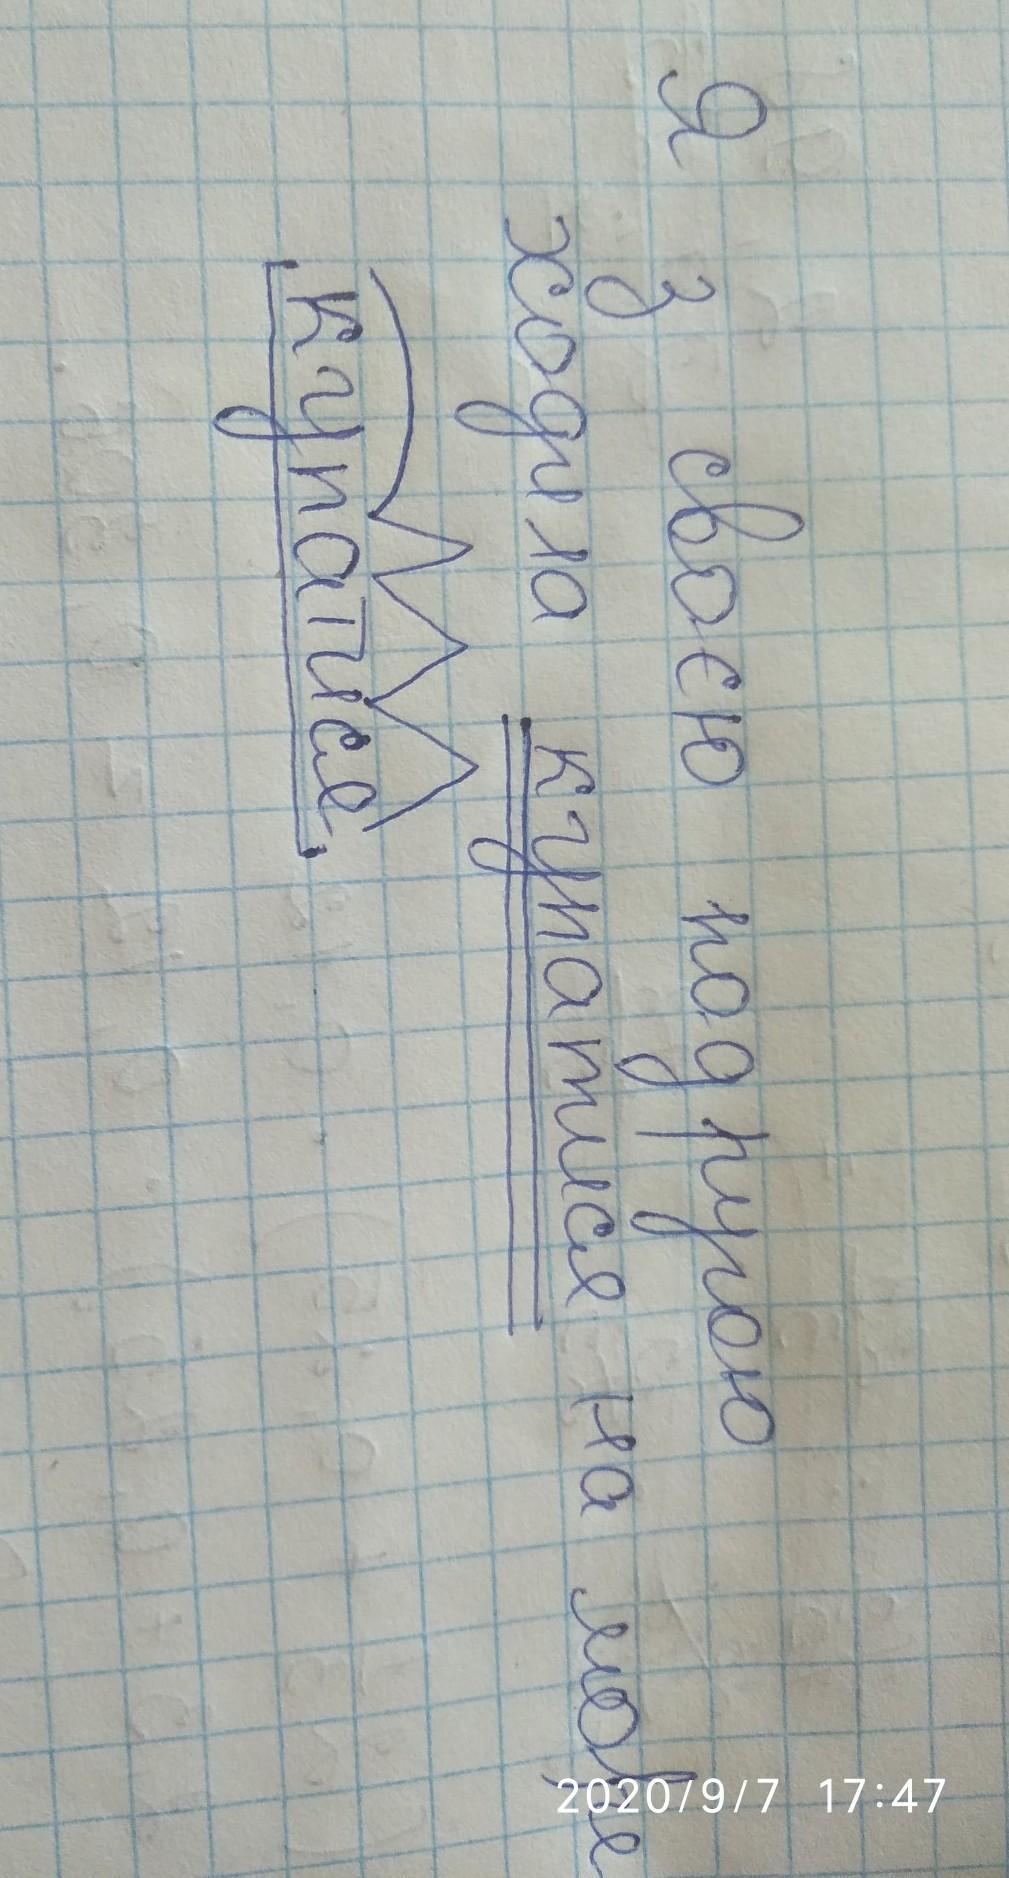 Я з своєю подругою
ходила купатися на море
купатися
2020/9/7 17:47